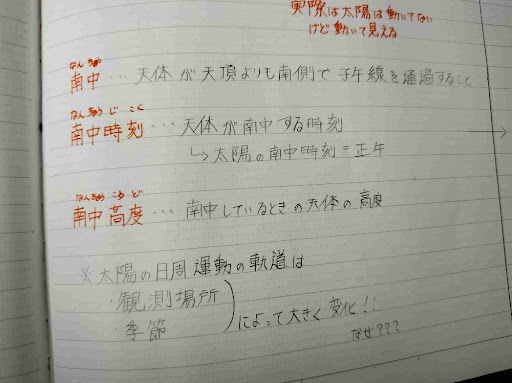 実際は太陽は動いてない
けど動いて見える
なんちゅう
南中…天体が天頂よりも南側で子午線を通過すること
なんちゅうじこく
南中時刻…天体が南中する時刻
↳太陽の南中時刻=正午
なんちゅうこうど
南中高度…南中しているときの天体の高度
※太陽の日周運動の軌道は
・観測場所
・季節
によって大きく変化!!
なぜ???